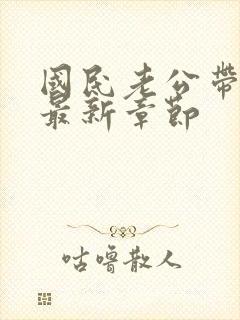 國民老公帶
最新章節
咕嚕散人